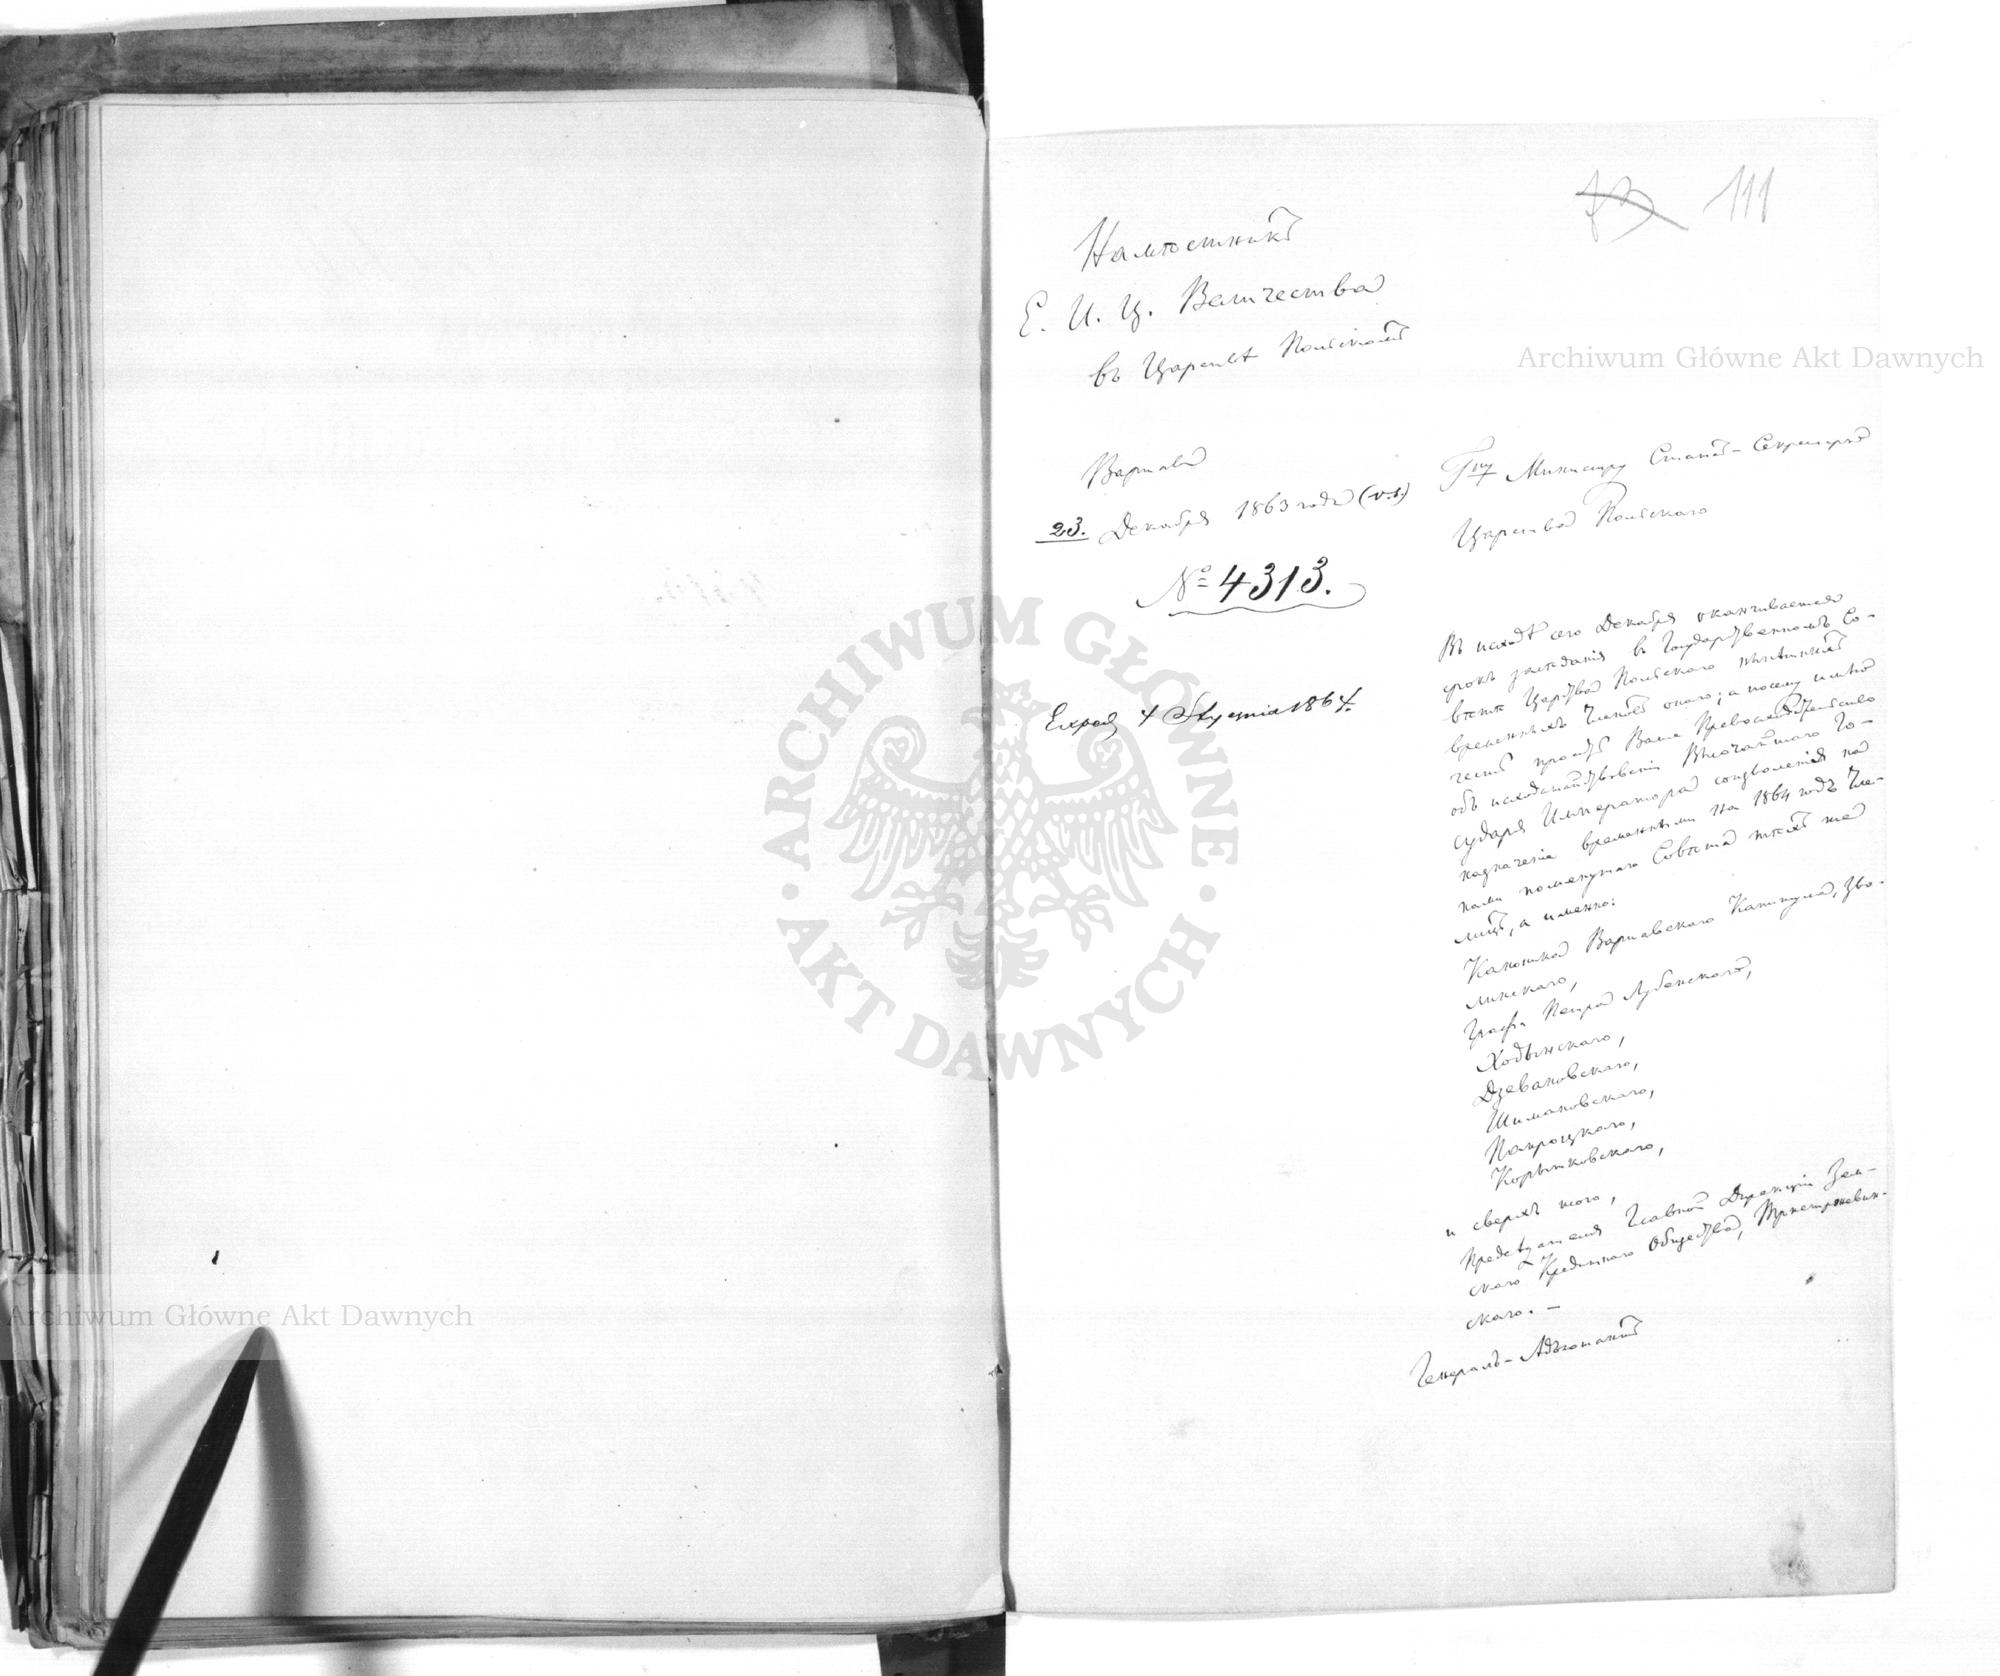 73 111
Намѣстникъ
Е. И. Ц. Величества
въ Царствѣ Польскомъ
Archiwum Główne Akt Dawnych
Варшава
23. Декабря 1863 года (v.s.)
№ 4313.
Exped 4 Stycznia 1864.
Г ну Министру Статсъ-Секретарю
Царства Польскаго
Въ исходѣ сего Декабря оканчивается
срокъ засѣданія въ Государственномъ Со-
вѣтѣ Царства Польскаго нынѣшнихъ
временныхъ Членовъ онаго; а посему имѣю
честь просить Ваше Превосходительство
объ исходатайствованіи Высочайшаго Го-
сударя Императора соизволенія на
назначеніе временными на 1864 годъ Чле-
нами помянутаго Совѣта тѣхъ же
лицъ, а именно:
Каноника Варшавскаго Капитула, Зво-
линскаго,
Графа Петра Лубенскаго,
Ходынскаго,
Дзевановскаго,
Шимановскаго,
Папроцкаго,
Корытковскаго,
и сверхъ того,
Предсѣдателя Главной Дирекціи Зем-
скаго Кредитнаго Общества,
скаго. —
Генералъ-Адъютантъ
ARCHIWUM GŁÓWNE
AKT DAWNYCH
Archiwum Główne Akt Dawnych